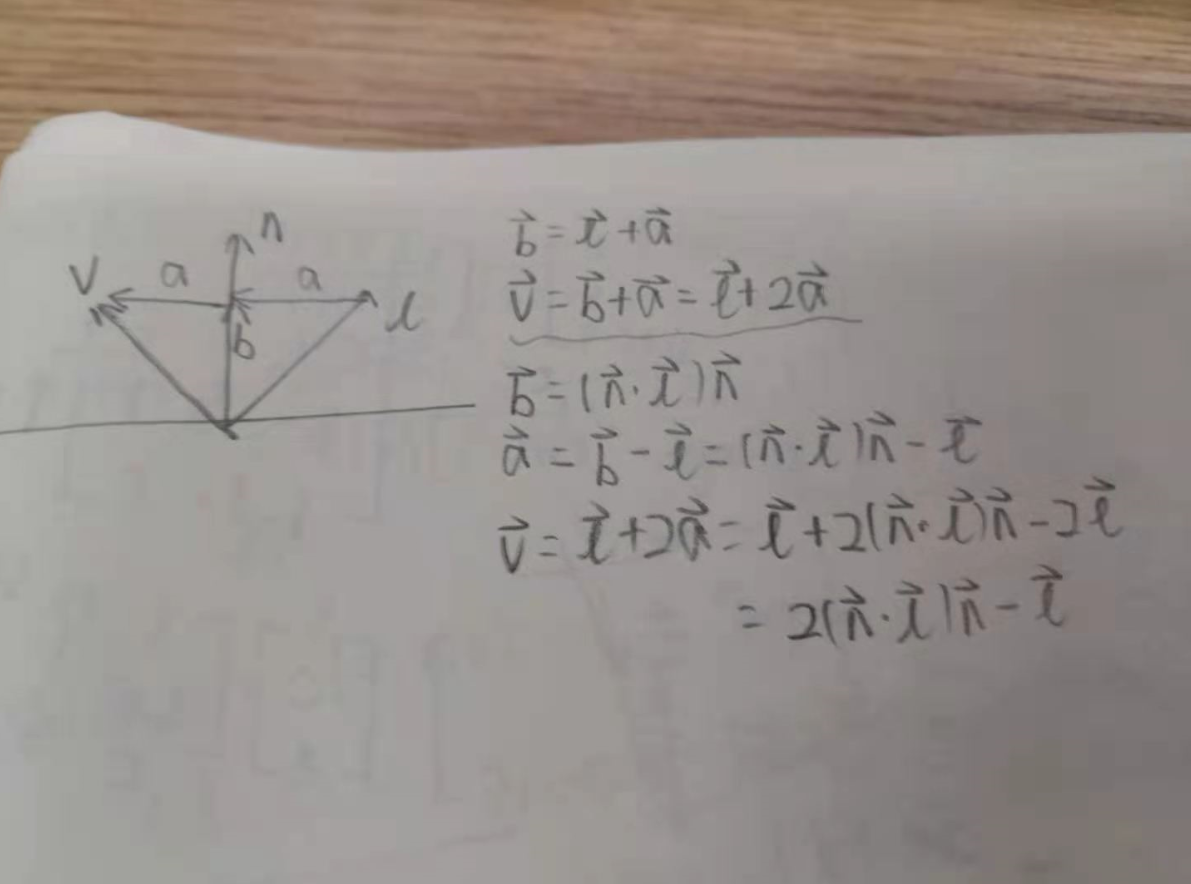 n
V a a l
b
b⃗ = l⃗ + a⃗
v⃗ = b⃗ + a⃗ = l⃗ + 2a⃗
b⃗ = (n⃗ · l⃗) n⃗
a⃗ = b⃗ - l⃗ = (n⃗ · l⃗) n⃗ - l⃗
v⃗ = l⃗ + 2a⃗ = l⃗ + 2(n⃗ · l⃗) n⃗ - 2l⃗
= 2(n⃗ · l⃗) n⃗ - l⃗